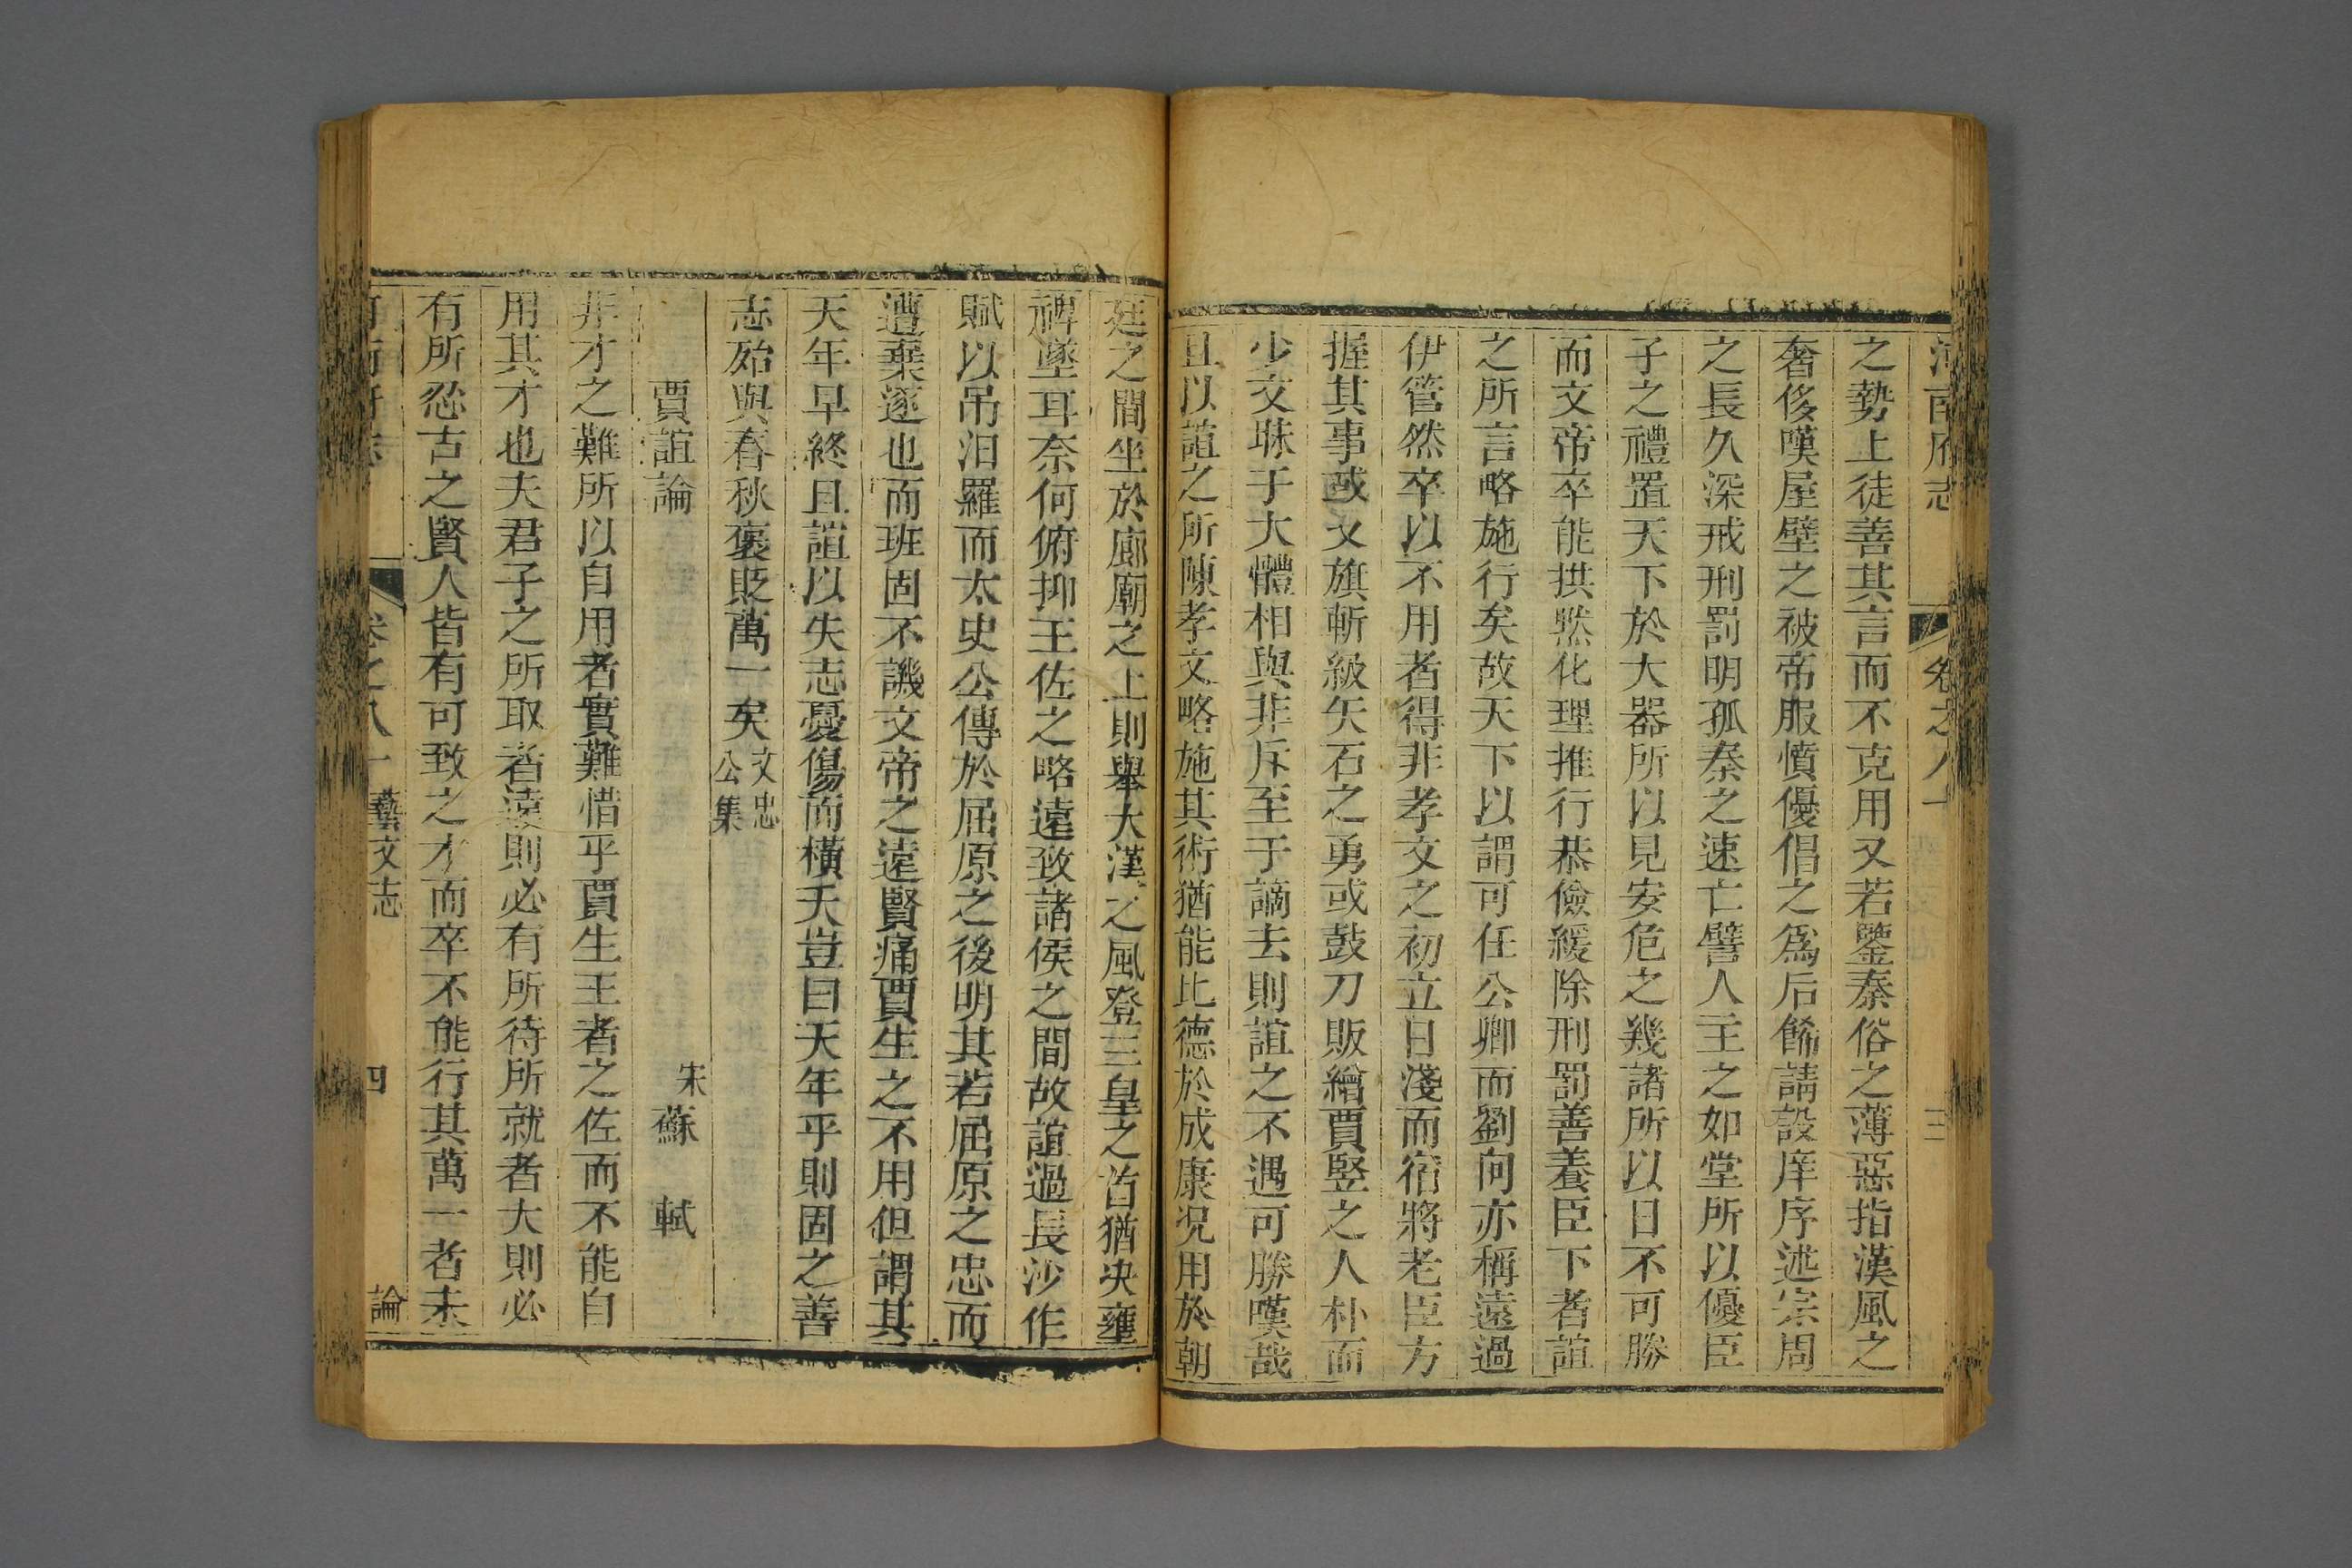 河南府志 卷之八十 三
之勢上徒善其言而不克用又若鑒秦俗之薄惡指漢風之
奢侈嘆屋壁之被帝服憤優倡之爲后餙請設庠序述宗周
之長久深戒刑罰明孤秦之速亡譬人主之如堂所以優臣
子之禮置天下於大器所以見安危之幾諸所以日不可勝
而文帝卒能拱黙化理推行恭儉緩除刑罰善養臣下者誼
之所言略施行矣故天下以謂可任公卿而劉向亦稱遠過
伊管然卒以不用者得非孝文之初立日淺而宿將老臣方
握其事或艾旗斬級矢石之勇或鼓刀販繒賈竪之人朴而
少文昧于大體相與非斥至于謫去則誼之不遇可勝嘆哉
且以誼之所陳孝文略施其術猶能比德於成康况用於朝
廷之間坐於廊廟之上則舉大漢之風登三皇之首猶决壅
裨墜耳奈何俯抑王佐之略遠致諸侯之間故誼過長沙作
賦以吊汨羅而太史公傳於屈原之後明其若屈原之忠而
遭棄逐也而班固不譏文帝之遠賢痛賈生之不用但謂其
天年早終且誼以失志憂傷而橫夭豈曰天年乎則固之善
志殆與春秋褒貶萬一矣 文忠公集
賈誼論 宋 蘇軾
非才之難所以自用者實難惜乎賈生王者之佐而不能自
用其才也夫君子之所取者遠則必有所待所就者大則必
有所忍古之賢人皆有可致之才而卒不能行其萬一者未
河南府志 卷之八十 藝文志 四 論